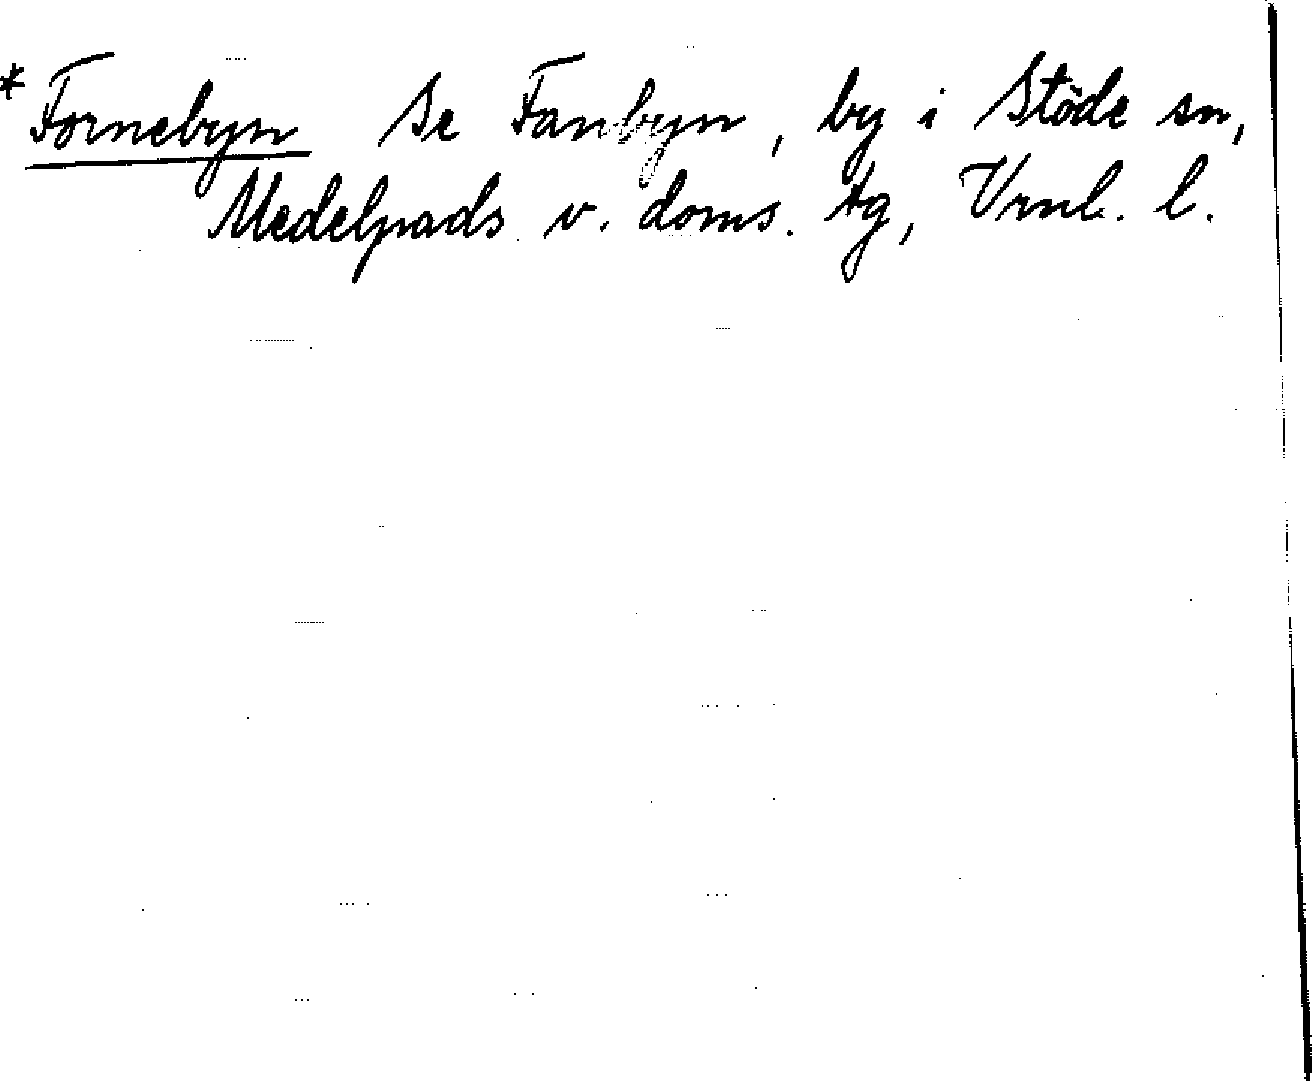 *Fornebyn Se Fanbyn, by i Stöde sn,
Medelpads v. doms. tg, Vrnl. l.